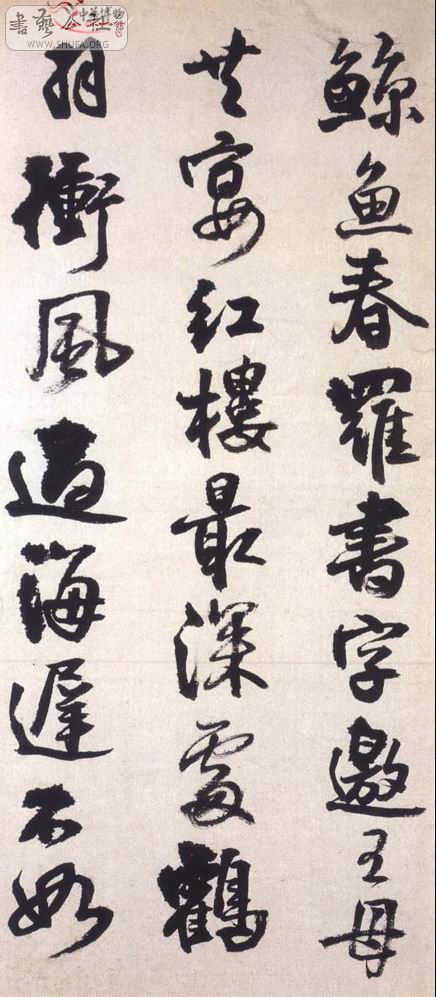 書藝公社
WWW.SHUFA.ORG
鯨魚春羅書字邀王母
共宴紅樓最深處鶴
羽衝風過海遲不如